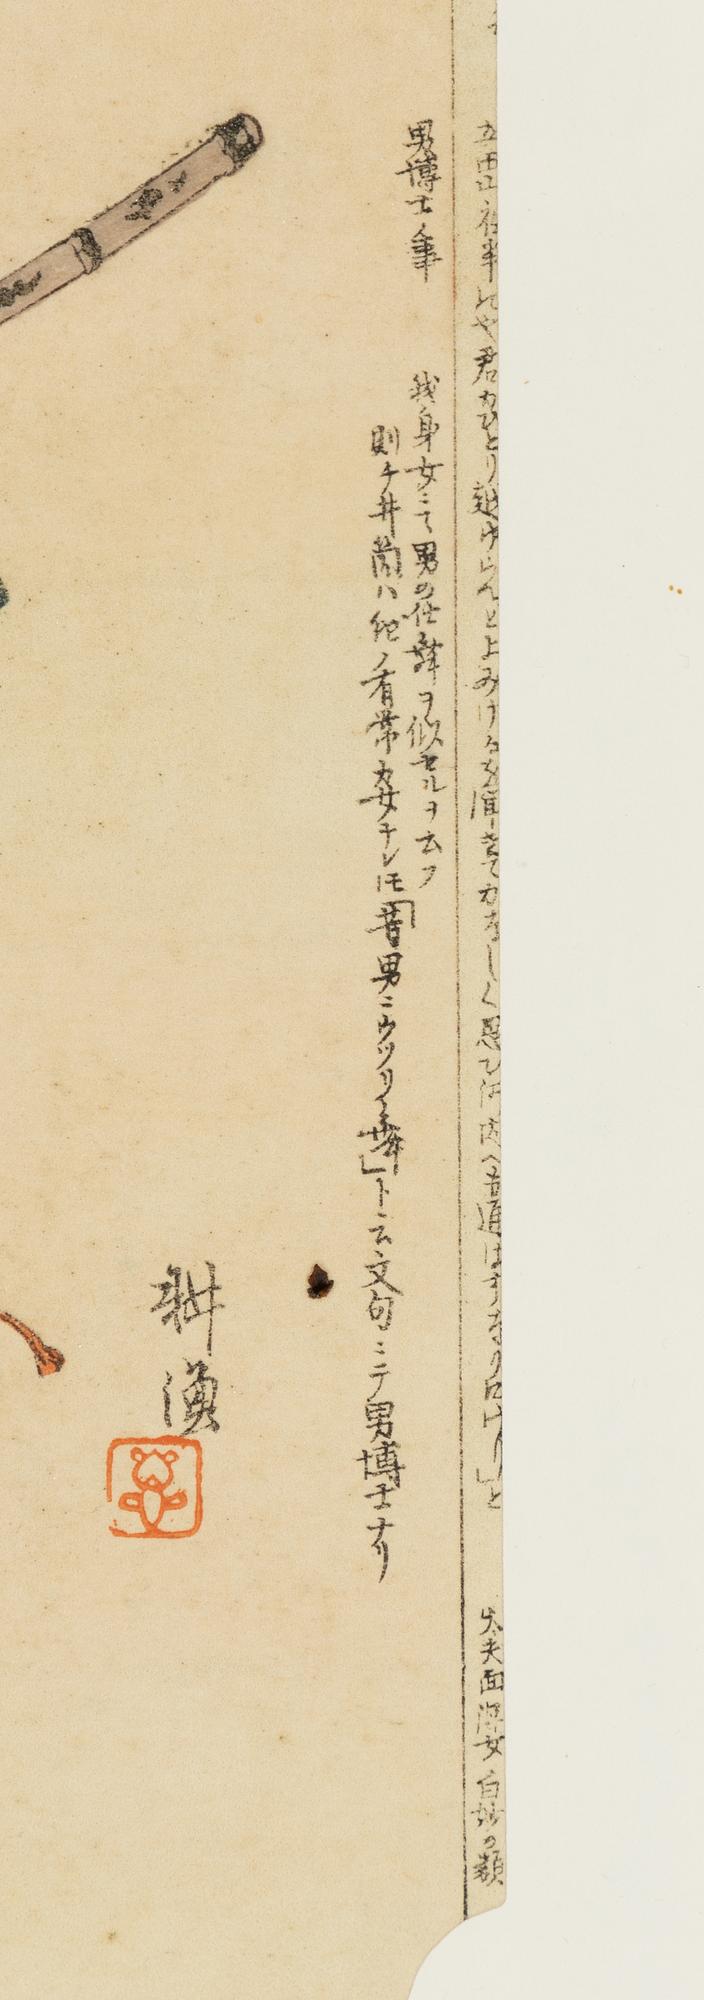 立田山夜半にや君がひとり越ゆらんとよみけるを聞きてかなしく思ひ河内へ
大夫面深女 白妙の類
男博士ノ事
我身女ニて男の仕舞ヲ似セルヲ云フ
則チ井筒ハ紀ノ有常女ナレ𪜈「昔男ニウツリ舞」ト云文句ニテ男博士ナリ
耕漁